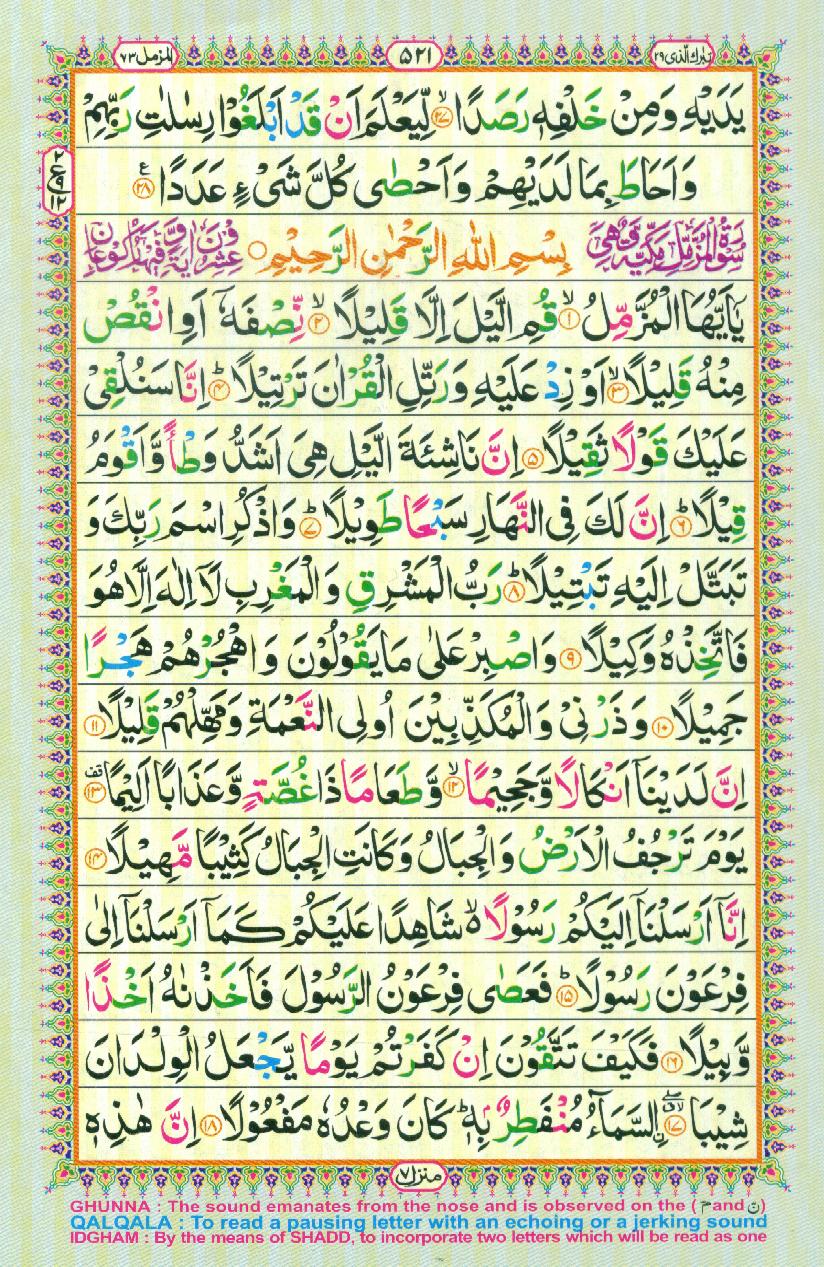 تبٰرك الّذی ۲۹
۵۲۱
المزمل ۷۳
یَدَیْهِ وَمِنْ خَلْفِهٖ رَصَدًا ۙ۲۷ لِّیَعْلَمَ اَنْ قَدْ اَبْلَغُوْا رِسٰلٰتِ رَبِّهِمْ
وَاَحَاطَ بِمَا لَدَیْهِمْ وَاَحْصٰی كُلَّ شَیْءٍ عَدَدًا ۲۸ ع
۲ ع ۹ ۱۲
سُوْرَةُ الْمُزَّمِّلِ مَكِّیَّةٌ وَّهِیَ بِسْمِ اللهِ الرَّحْمٰنِ الرَّحِیْمِ عِشْرُوْنَ اٰیَةً وَّفِیْهَا رُكُوْعَانِ
یٰۤاَیُّهَا الْمُزَّمِّلُ ۙ۱ قُمِ الَّیْلَ اِلَّا قَلِیْلًا ۙ۲ نِّصْفَهٗۤ اَوِ انْقُصْ
مِنْهُ قَلِیْلًا ۙ۳ اَوْ زِدْ عَلَیْهِ وَرَتِّلِ الْقُرْاٰنَ تَرْتِیْلًا ؕ۴ اِنَّا سَنُلْقِیْ
عَلَیْكَ قَوْلًا ثَقِیْلًا ۵ اِنَّ نَاشِئَةَ الَّیْلِ هِیَ اَشَدُّ وَطْأً وَّاَقْوَمُ
قِیْلًا ؕ۶ اِنَّ لَكَ فِی النَّهَارِ سَبْحًا طَوِیْلًا ؕ۷ وَاذْكُرِ اسْمَ رَبِّكَ وَ
تَبَتَّلْ اِلَیْهِ تَبْتِیْلًا ؕ۸ رَبُّ الْمَشْرِقِ وَالْمَغْرِبِ لَاۤ اِلٰهَ اِلَّا هُوَ
فَاتَّخِذْهُ وَكِیْلًا ۹ وَاصْبِرْ عَلٰی مَا یَقُوْلُوْنَ وَاهْجُرْهُمْ هَجْرًا
جَمِیْلًا ۱۰ وَذَرْنِیْ وَالْمُكَذِّبِیْنَ اُولِی النَّعْمَةِ وَمَهِّلْهُمْ قَلِیْلًا ۱۱
اِنَّ لَدَیْنَاۤ اَنْكَالًا وَّجَحِیْمًا ۙ۱۲ وَّطَعَامًا ذَا غُصَّةٍ وَّعَذَابًا اَلِیْمًا قف ۱۳
یَوْمَ تَرْجُفُ الْاَرْضُ وَالْجِبَالُ وَكَانَتِ الْجِبَالُ كَثِیْبًا مَّهِیْلًا ۱۴
اِنَّاۤ اَرْسَلْنَاۤ اِلَیْكُمْ رَسُوْلًا ۙ۬ شَاهِدًا عَلَیْكُمْ كَمَاۤ اَرْسَلْنَاۤ اِلٰی
فِرْعَوْنَ رَسُوْلًا ؕ۱۵ فَعَصٰی فِرْعَوْنُ الرَّسُوْلَ فَاَخَذْنٰهُ اَخْذًا
وَّبِیْلًا ۱۶ فَكَیْفَ تَتَّقُوْنَ اِنْ كَفَرْتُمْ یَوْمًا یَّجْعَلُ الْوِلْدَانَ
شِیْبَا ۱۷ اِ۟لسَّمَآءُ مُنْفَطِرٌۢ بِهٖ ؕ كَانَ وَعْدُهٗ مَفْعُوْلًا ۱۸ اِنَّ هٰذِهٖ
منزل ۷
GHUNNA : The sound emanates from the nose and is observed on the ( م and ن )
QALQALA : To read a pausing letter with an echoing or a jerking sound
IDGHAM : By the means of SHADD, to incorporate two letters which will be read as one